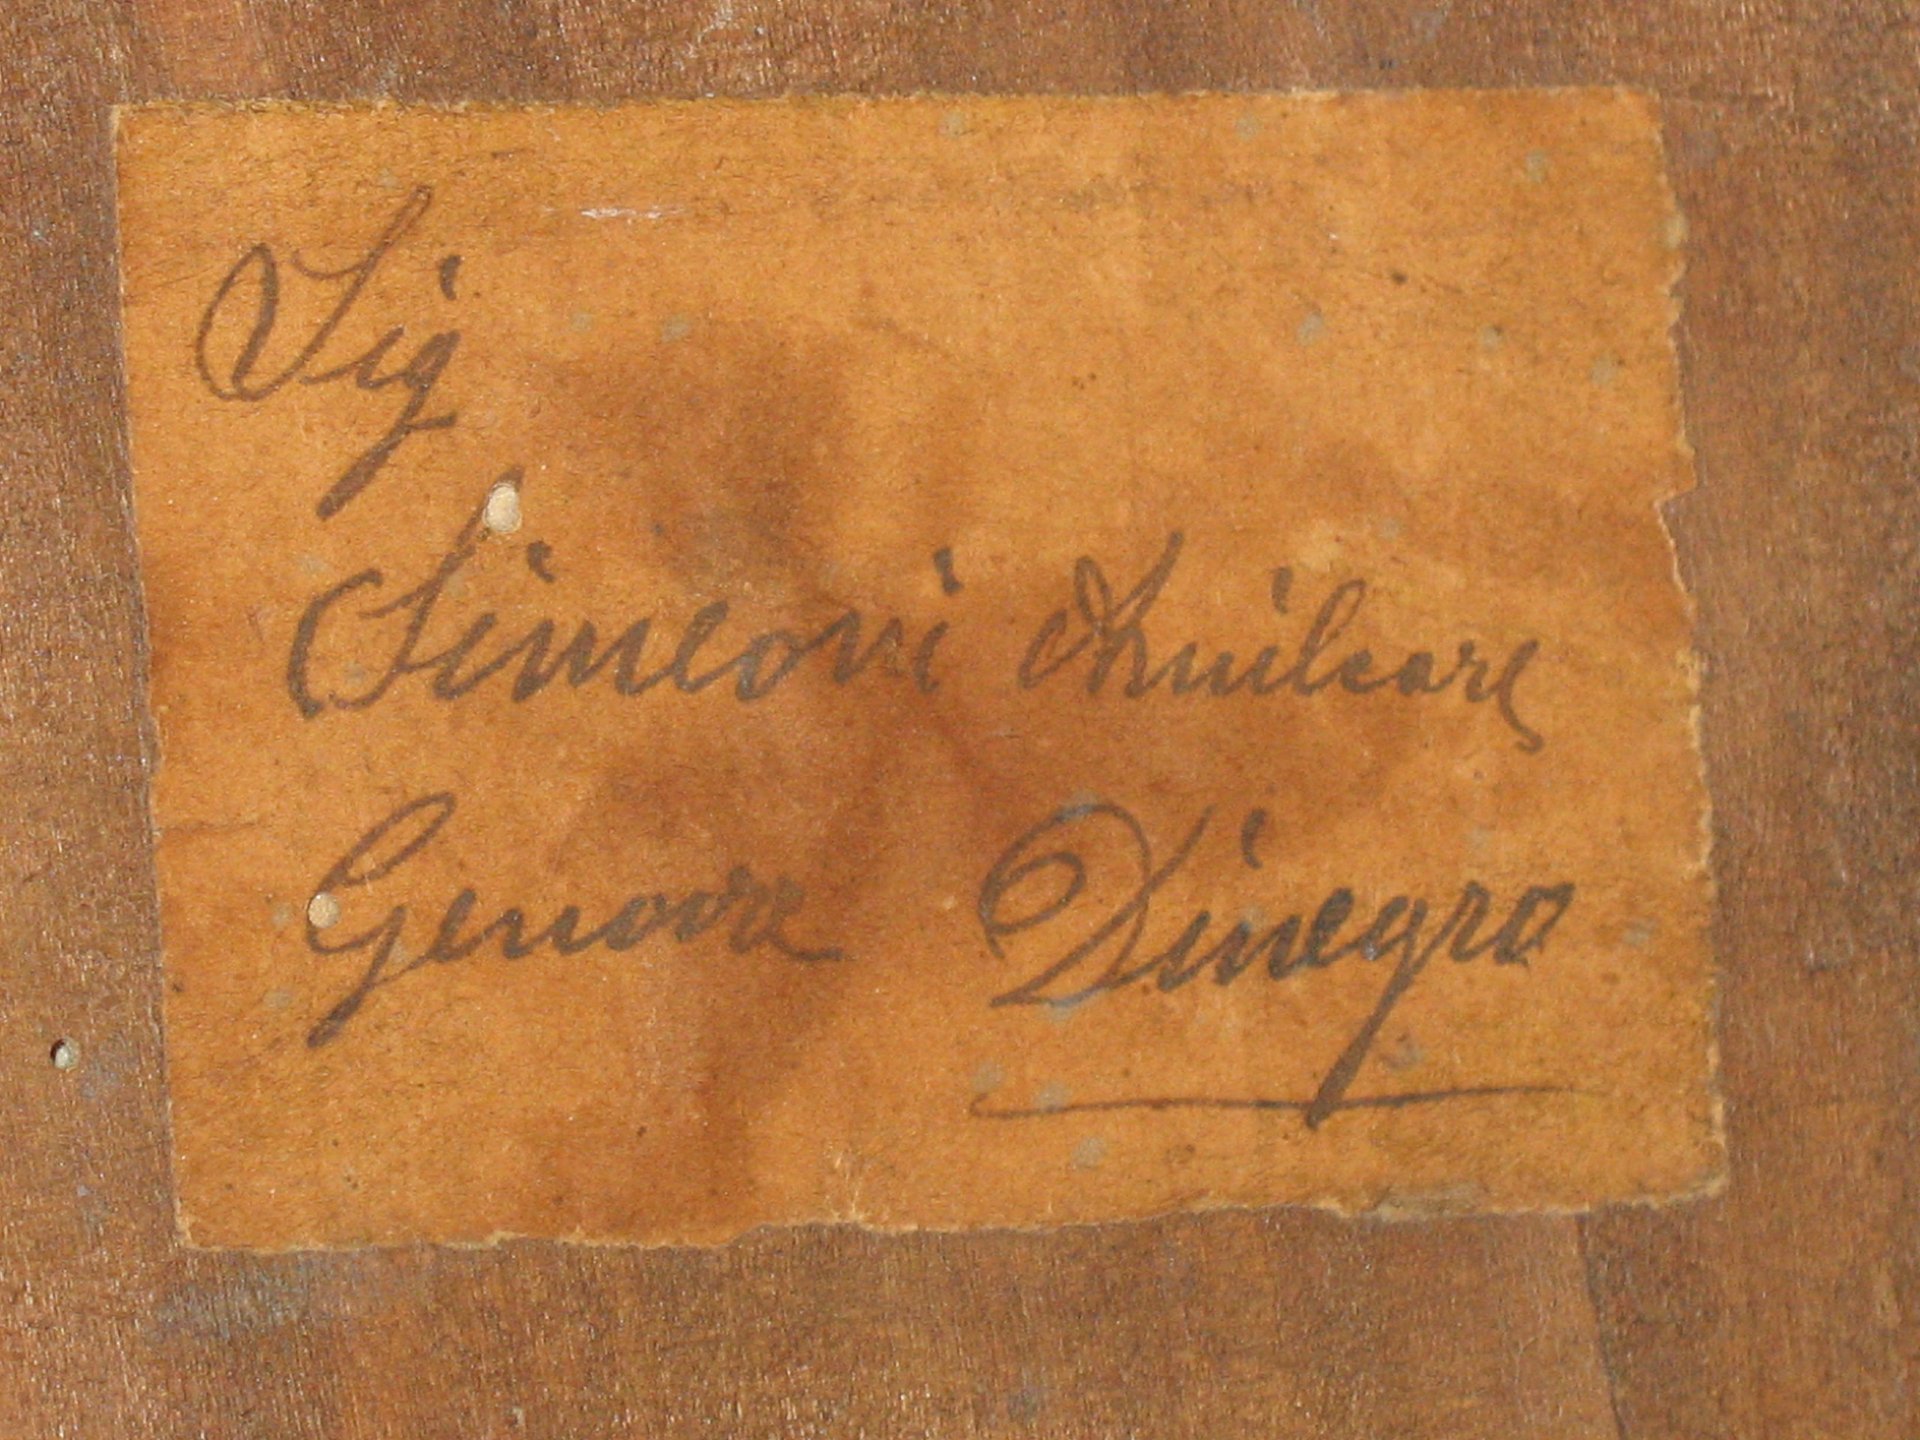 Sig
Simeoni Amilcare
Genova Dinegro